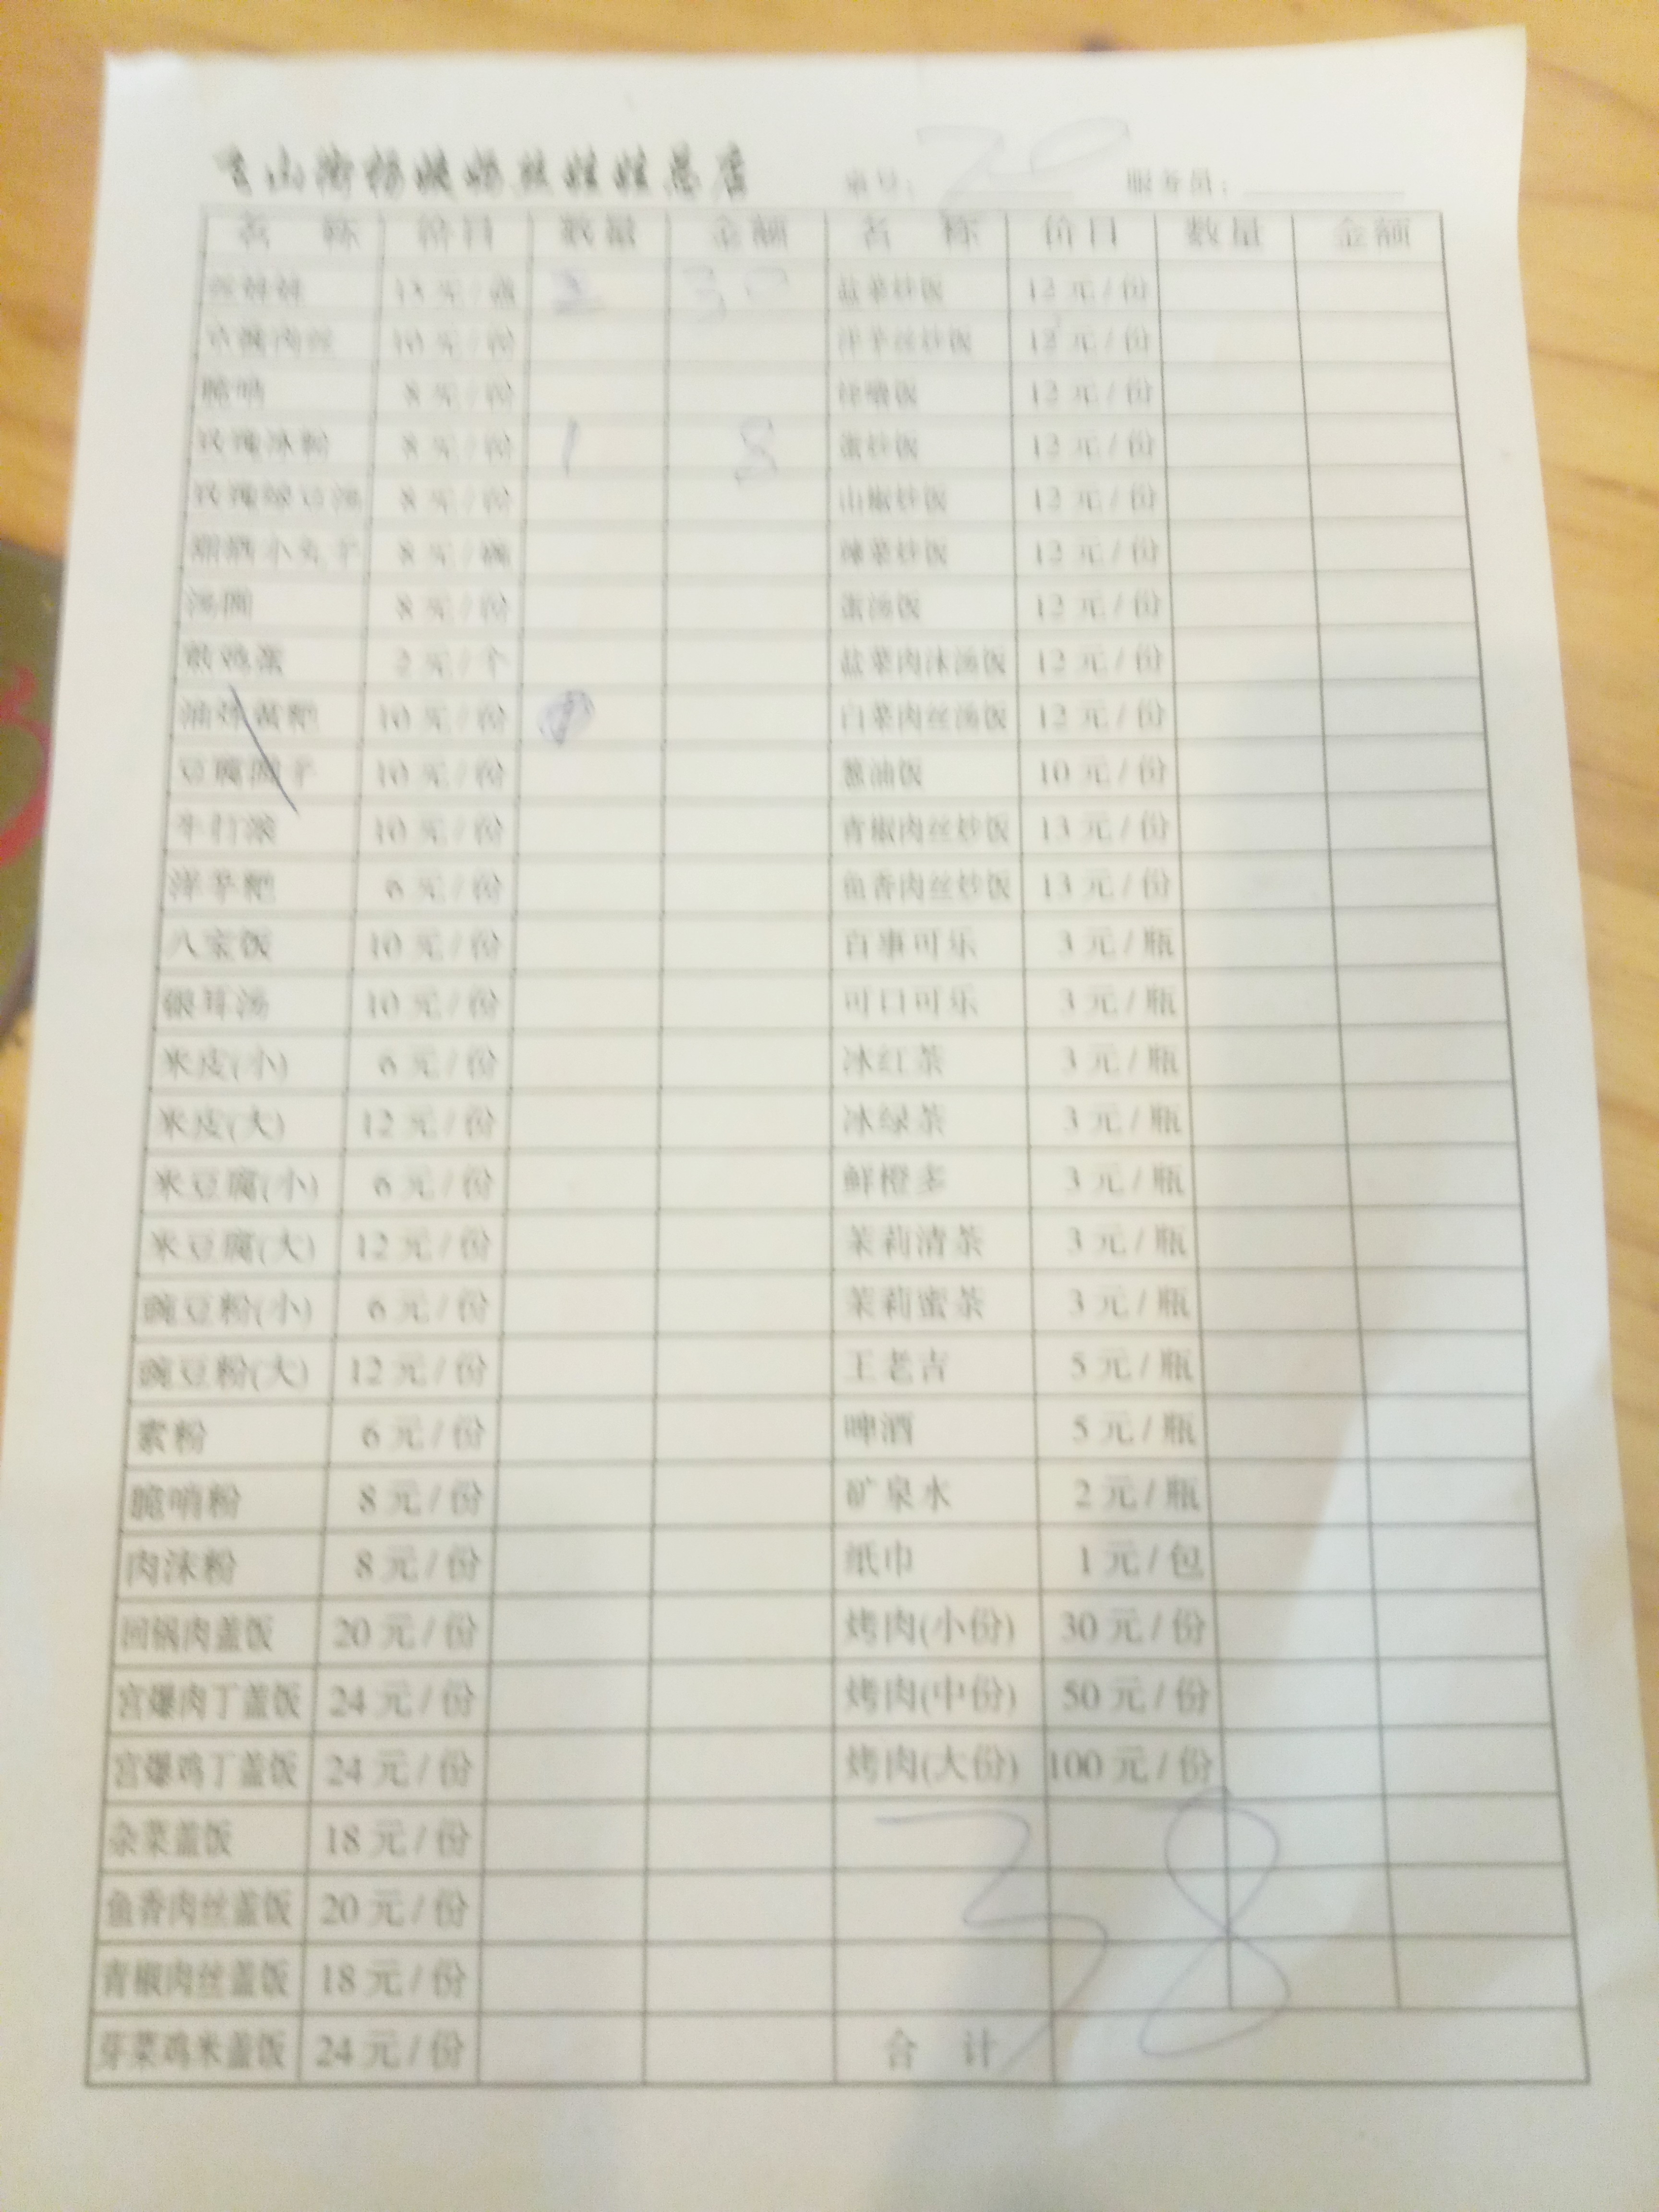 桌号: 20 服务员:
名 称 价目 数量 金额 名 称 价目 数量 金额
丝娃娃 15元/盘 2 30 盐菜炒饭 12元/份
10元/份 洋芋丝炒饭 12元/份
脆哨 8元/份 12元/份
玫瑰冰粉 8元/份 1 8 蛋炒饭 12元/份
8元/份 山椒炒饭 12元/份
甜酒小丸子 8元/碗 12元/份
汤圆 8元/份 蛋汤饭 12元/份
煎鸡蛋 2元/个 盐菜肉沫汤饭 12元/份
油炸黄粑 10元/份 白菜肉丝汤饭 12元/份
豆腐圆子 10元/份 葱油饭 10元/份
牛打滚 10元/份 青椒肉丝炒饭 13元/份
洋芋粑 6元/份 鱼香肉丝炒饭 13元/份
八宝饭 10元/份 百事可乐 3元/瓶
银耳汤 10元/份 可口可乐 3元/瓶
米皮(小) 6元/份 冰红茶 3元/瓶
米皮(大) 12元/份 冰绿茶 3元/瓶
米豆腐(小) 6元/份 鲜橙多 3元/瓶
米豆腐(大) 12元/份 茉莉清茶 3元/瓶
豌豆粉(小) 6元/份 茉莉蜜茶 3元/瓶
豌豆粉(大) 12元/份 王老吉 5元/瓶
素粉 6元/份 啤酒 5元/瓶
脆哨粉 8元/份 矿泉水 2元/瓶
肉沫粉 8元/份 纸巾 1元/包
回锅肉盖饭 20元/份 烤肉(小份) 30元/份
宫爆肉丁盖饭 24元/份 烤肉(中份) 50元/份
宫爆鸡丁盖饭 24元/份 烤肉(大份) 100元/份
杂菜盖饭 18元/份
鱼香肉丝盖饭 20元/份
青椒肉丝盖饭 18元/份
芽菜鸡米盖饭 24元/份 合 计 38